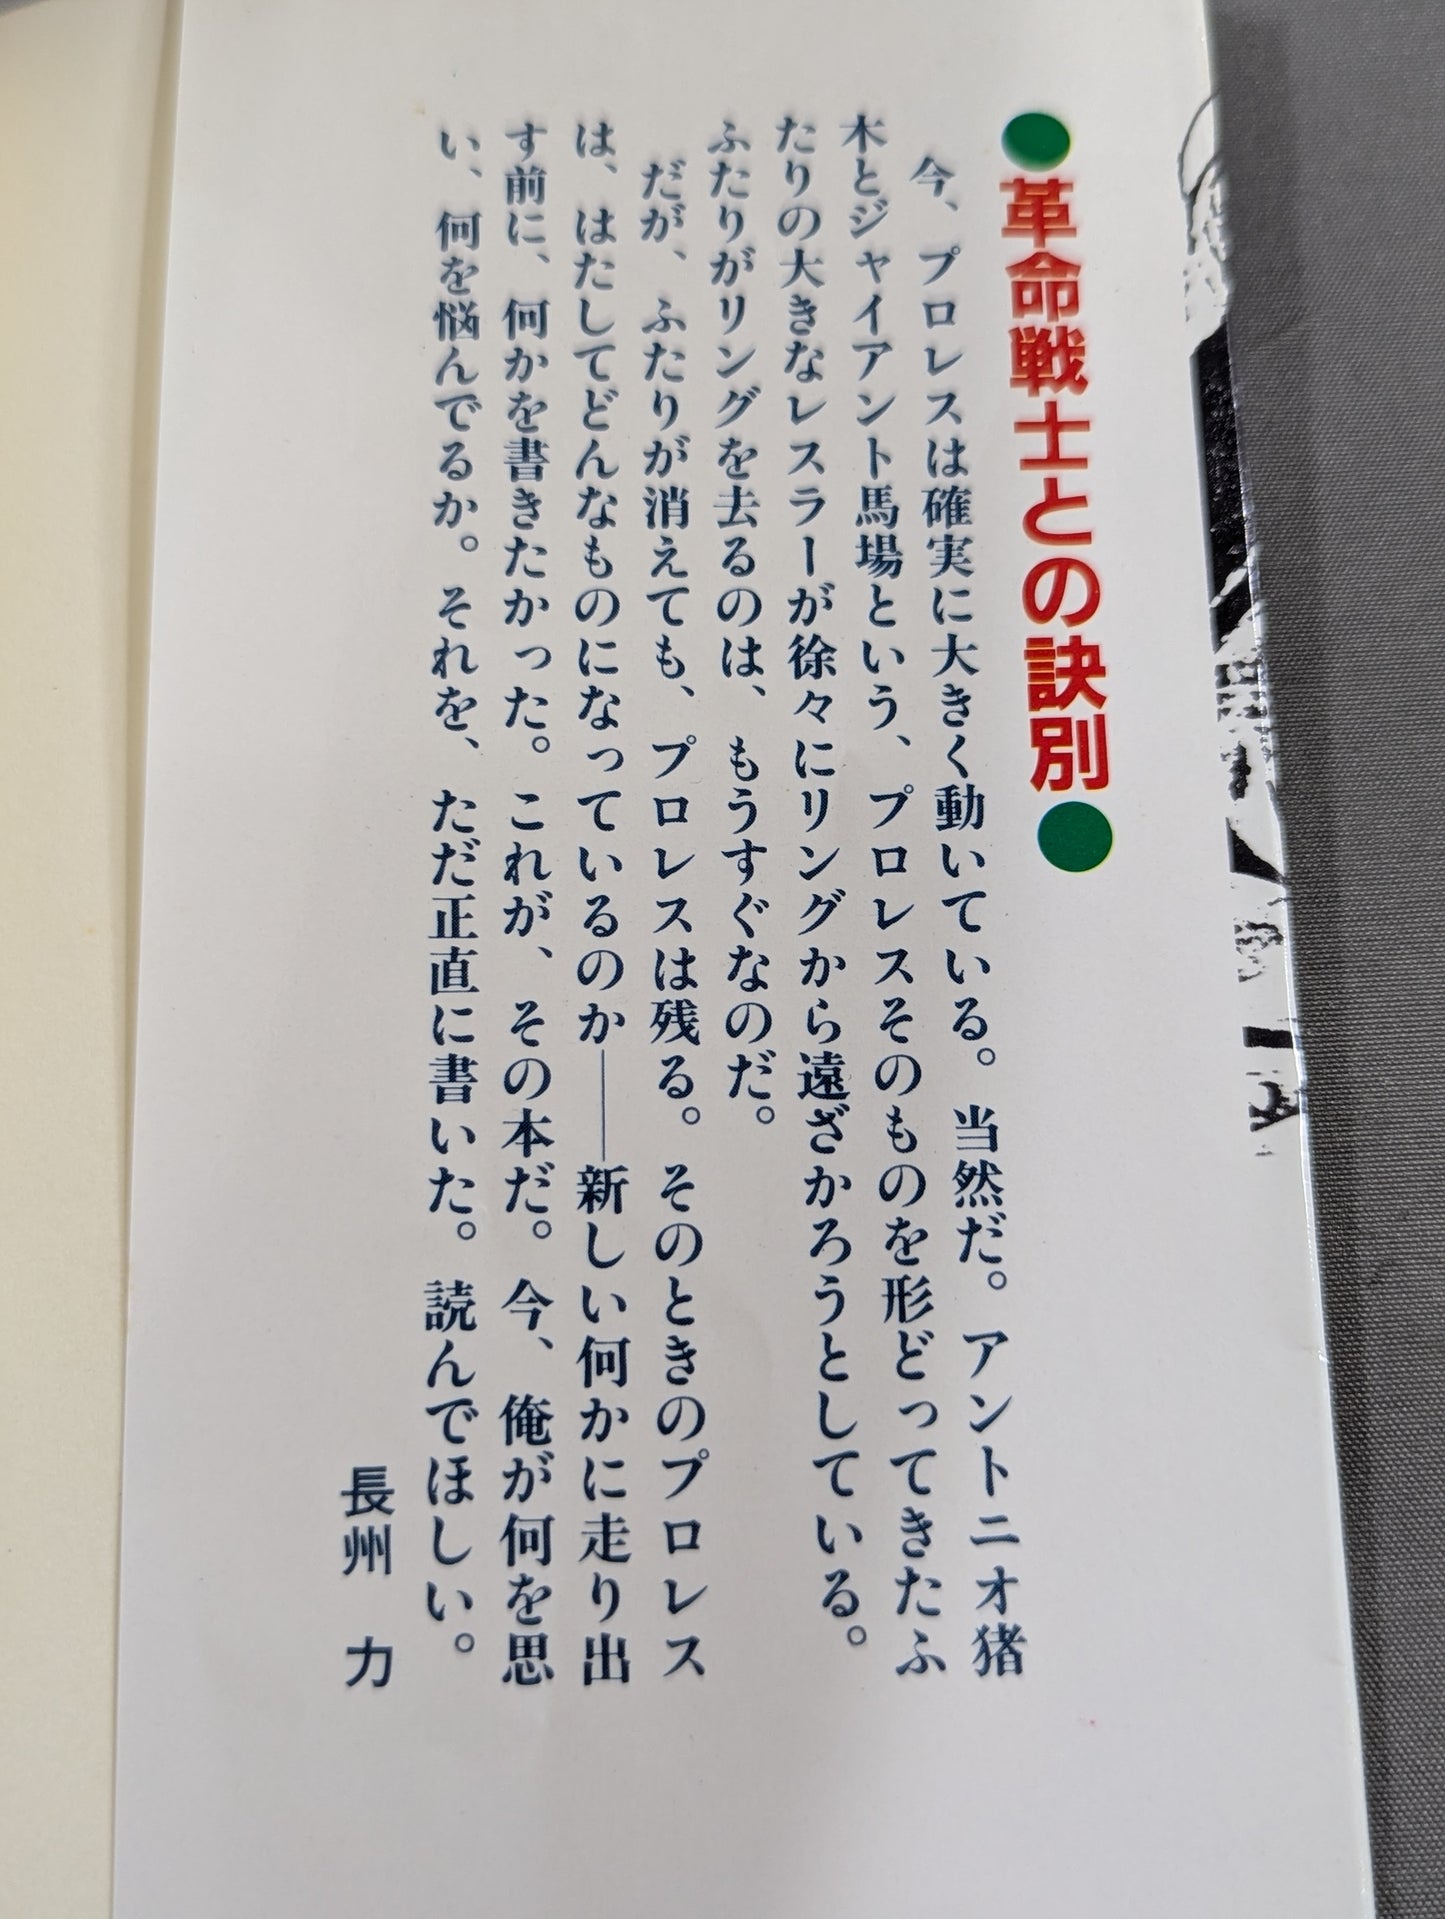 ●革命戦士との訣別●
今、プロレスは確実に大きく動いている。当然だ。アントニオ猪
木とジャイアント馬場という、プロレスそのものを形どってきたふ
たりの大きなレスラーが徐々にリングから遠ざかろうとしている。
ふたりがリングを去るのは、もうすぐなのだ。
だが、ふたりが消えても、プロレスは残る。そのときのプロレス
は、はたしてどんなものになっているのか――新しい何かに走り出
す前に、何かを書きたかった。これが、その本だ。今、俺が何を思
い、何を悩んでるか。それを、ただ正直に書いた。読んでほしい。
長州 力